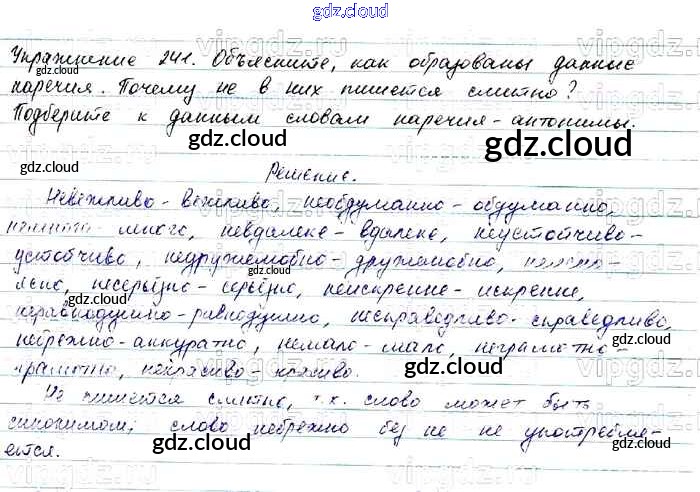 gdz.cloud
Упражнение 241. Объясните, как образованы данные
gdz.cloud
наречия. Почему не в них пишется слитно?
Подберите к данным словам наречия-антонимы.
gdz.cloud gdz.cloud
Решение.
Невежливо - вежливо, необдуманно - обдуманно,
gdz.cloud
много, невдалеке - вдалеке, неустойчиво-
устойчиво, недружелюбно - дружелюбно,
gdz.cloud
несерьёзно - серьёзно, неискренне - искренне,
gdz.cloud
неравнодушно - равнодушно, несправедливо - справедливо,
небрежно - аккуратно, немало - мало, неграмотно-
gdz.cloud
грамотно, некрасиво - красиво.
Не пишется слитно, т.к. слово может быть
gdz.cloud
синонимом; слово небрежно без не не употребля-
gdz.cloud
ется.
gdz.cloud